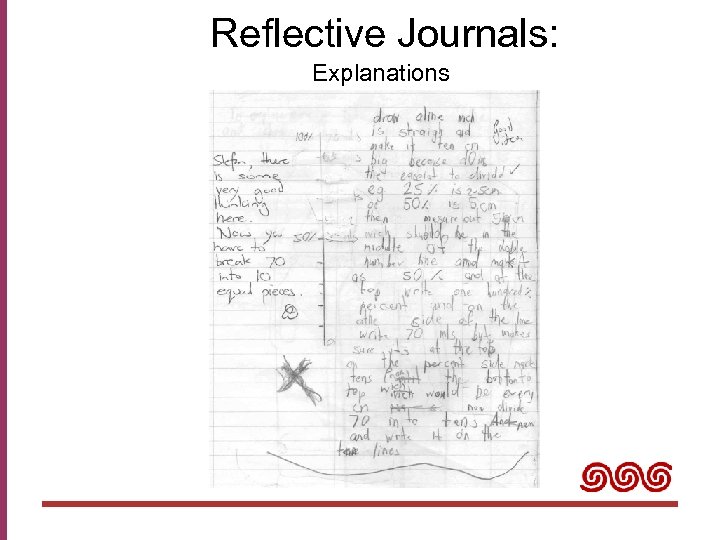 Reflective Journals:
Explanations
Stefan, there
is some
very good
thinking
here.
Now you
have to
break 70
into 10
equal pieces.
100%
50%
good
idea
draw a line wich
is straigh and
make it ten cm
big because 10 is
the easyist to divide
eg 25% is 2.5cm
or 50% is 5cm
then mesure out 5cm
wich should be in the
middle of the doble
number line and mark it
as 50% and at the
top write one hundred
percent and on the
othe side of the line
write 70 mls but makes
sure its at the top
on the percent side mark
tens from the bottom to
top wich would be every
cm now divide
70 in to tens
and write it on the
lines